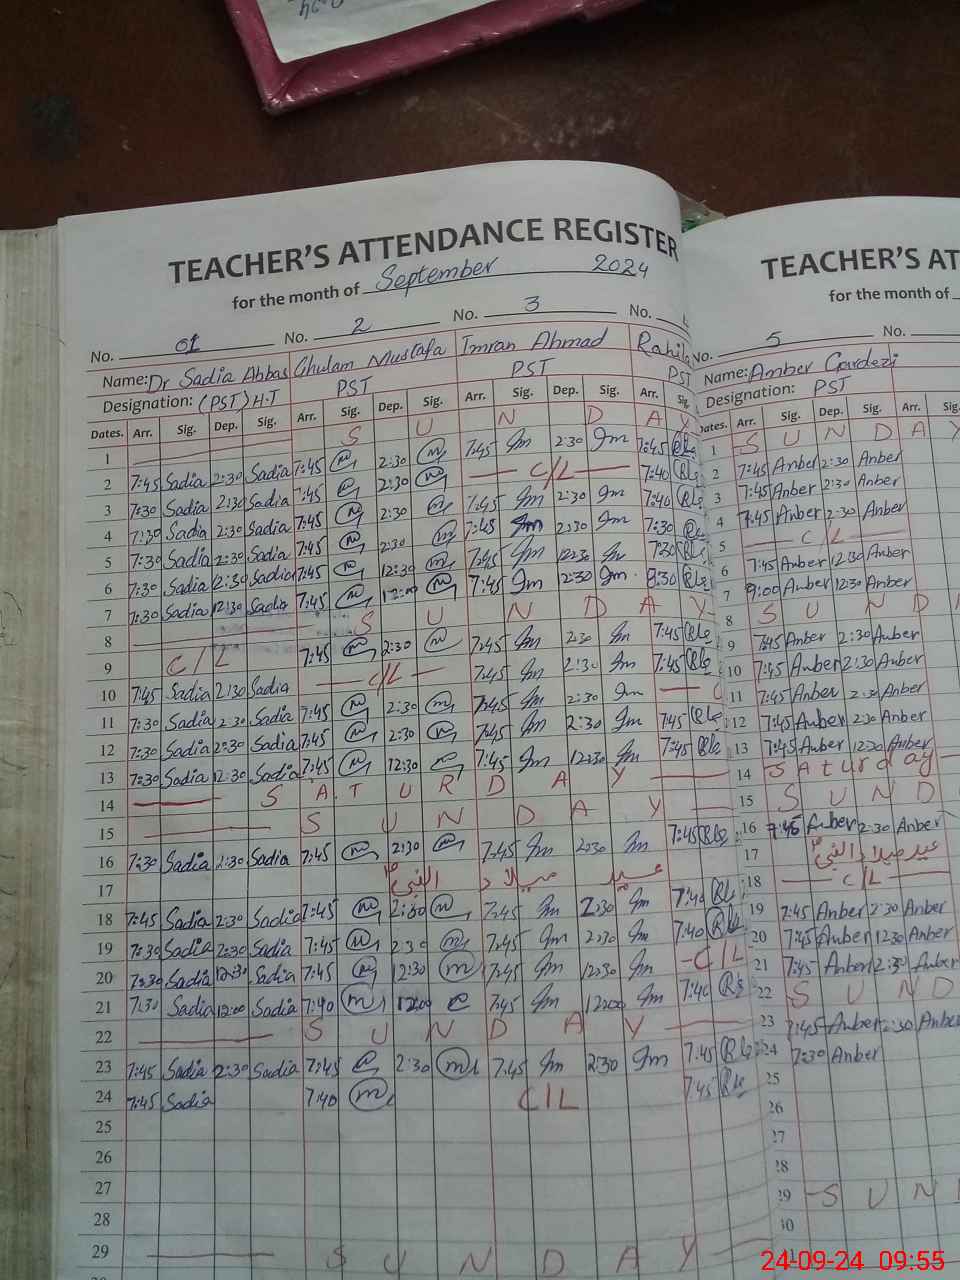 TEACHER'S ATTENDANCE REGISTER
for the month of September 2024
No. 01 No. 2 No. 3 No.
Name: Dr Sadia Abbas Ghulam Mustafa Imran Ahmad Rahila
Designation: (PST) H.T PST PST PST
Dates. Arr. Sig. Dep. Sig. Arr. Sig. Dep. Sig. Arr. Sig. Dep. Sig. Arr. Sig.
1 S U N D A Y
2 7:45 Sadia 2:30 Sadia 7:45 2:30 7:45 2:30 7:45
3 7:30 Sadia 2:30 Sadia 7:45 2:30 C/L 7:40
4 7:30 Sadia 2:30 Sadia 7:45 2:30 7:45 2:30 7:40
5 7:30 Sadia 2:30 Sadia 7:45 2:30 7:45 2:30 7:30
6 7:30 Sadia 12:30 Sadia 7:45 12:30 7:45 12:30 7:30
7 7:30 Sadia 12:30 Sadia 7:45 7:45 8:30
8 S U N D A Y
9 C/L 7:45 2:30 7:45 2:30 7:45
10 7:45 Sadia 2:30 Sadia C/L 7:45 2:30 7:45
11 7:30 Sadia 2:30 Sadia 7:45 2:30 7:45 2:30
12 7:30 Sadia 2:30 Sadia 7:45 2:30 7:45 2:30 7:45
13 7:30 Sadia 12:30 Sadia 7:45 12:30 7:45 12:30 7:45
14 S A T U R D A Y
15 S U N D A Y
16 7:30 Sadia 2:30 Sadia 7:45 2:30 7:45 2:30 7:45
17 عید میلاد النبیؐ
18 7:45 Sadia 2:30 Sadia 7:45 2:30 7:45 2:30 7:40
19 7:30 Sadia 2:30 Sadia 7:45 2:30 7:45 2:30 7:40
20 7:30 Sadia 12:30 Sadia 7:45 12:30 7:45 12:30 C/L
21 7:30 Sadia 12:00 Sadia 7:40 12:00 7:45 12:00 7:40
22 S U N D A Y
23 7:45 Sadia 2:30 Sadia 7:45 2:30 7:45 2:30 7:45
24 7:45 Sadia 7:40 C/L 7:45
25
26
27
28
29 S U N D A Y
TEACHER'S AT
for the month of
No. 5 No.
Name: Amber Gardezi
Designation: PST
Dates. Arr. Sig. Dep. Sig. Arr. Sig.
1 S U N D A Y
2 7:45 Amber 2:30 Amber
3 7:45 Amber 2:30 Amber
4 7:45 Amber 2:30 Amber
5 C/L
6 7:45 Amber 12:30 Amber
7 9:00 Amber 12:30 Amber
8 S U N D
9 7:45 Amber 2:30 Amber
10 7:45 Amber 2:30 Amber
11 7:45 Amber 2:30 Amber
12 7:45 Amber 2:30 Amber
13 7:45 Amber 12:30 Amber
14 Saturday
15 S U N D
16 7:45 Amber 2:30 Amber
17 عید میلاد النبیؐ
18 C/L
19 7:45 Amber 2:30 Amber
20 7:45 Amber 12:30 Amber
21 7:45 Amber 12:30 Amber
22 S U N D
23 7:45 Amber 2:30 Amber
24 7:30 Amber
25
26
27
28
29 S U N
30
24-09-24 09:55